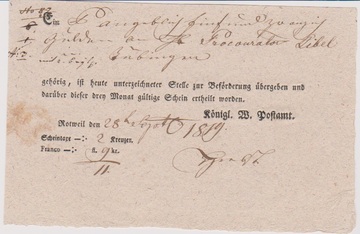 Ein P angeblich fünf und zwanzig
Gulden an H Procurator
Tübingen
gehörig, ist heute unterzeichneter Stelle zur Beförderung übergeben und
darüber dieser drey Monat gültige Schein ertheilt worden.
Königl. W. Postamt.
Rottweil den 28 Sept 1819.
Scheintage —: 2 Kreuzer.
Franco —: fl. 9 kr.
11